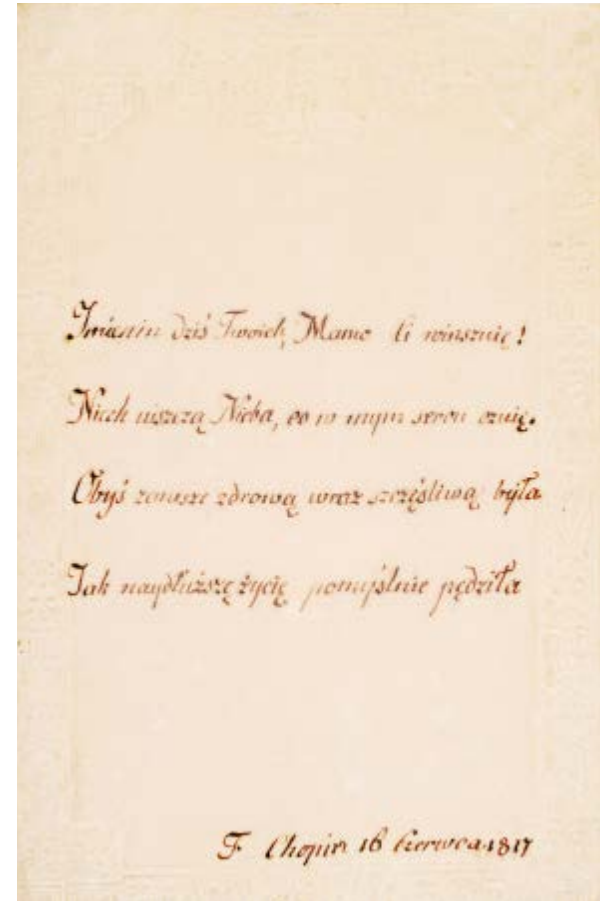 Imienin dziś Twoich, Mamo Ci winszuię!
Niech niszczą Nieba, co w mym sercu czuię.
Obyś zawsze zdrową wraz szczęśliwą była
Jak naydłuższę życię pomyślnie pędziła
F Chopin 16 Czerwca 1817